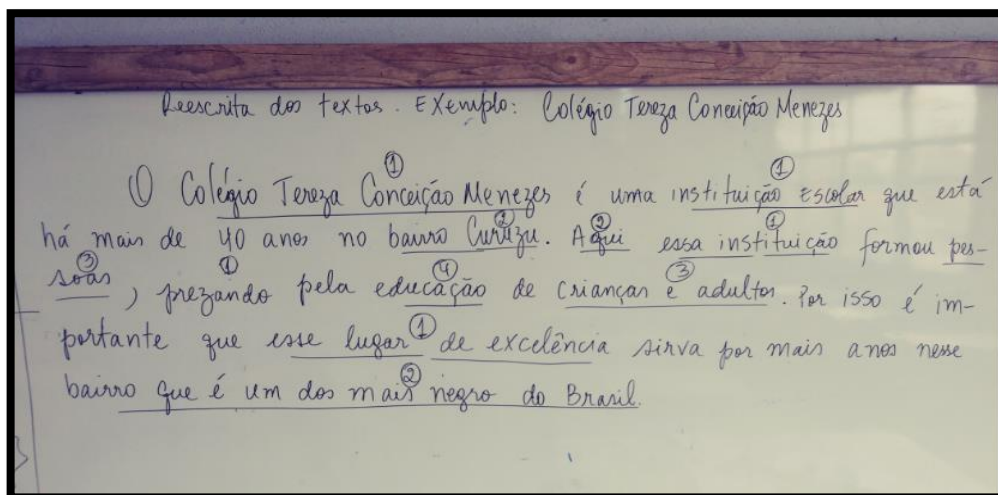 Reescrita dos textos. Exemplo: Colégio Tereza Conceição Menezes
① ①
O Colégio Tereza Conceição Menezes é uma instituição Escolar que está
② ② ①
há mais de 40 anos no bairro Curuzu. Aqui essa instituição formou pes-
③ ① ④ ③
soas, prezando pela educação de crianças e adultos. Por isso é im-
①
portante que esse lugar de excelência sirva por mais anos nesse
②
bairro que é um dos mais negro do Brasil.